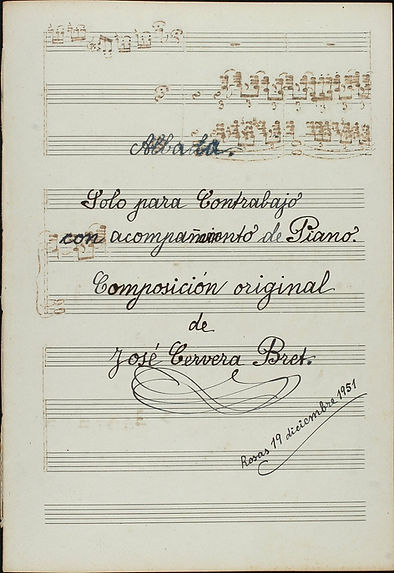 Albada.
Solo para Contrabajo
con acompamiento de Piano.
Composición original
de
José Cervera Bret.
Rosas 19 diciembre 1951